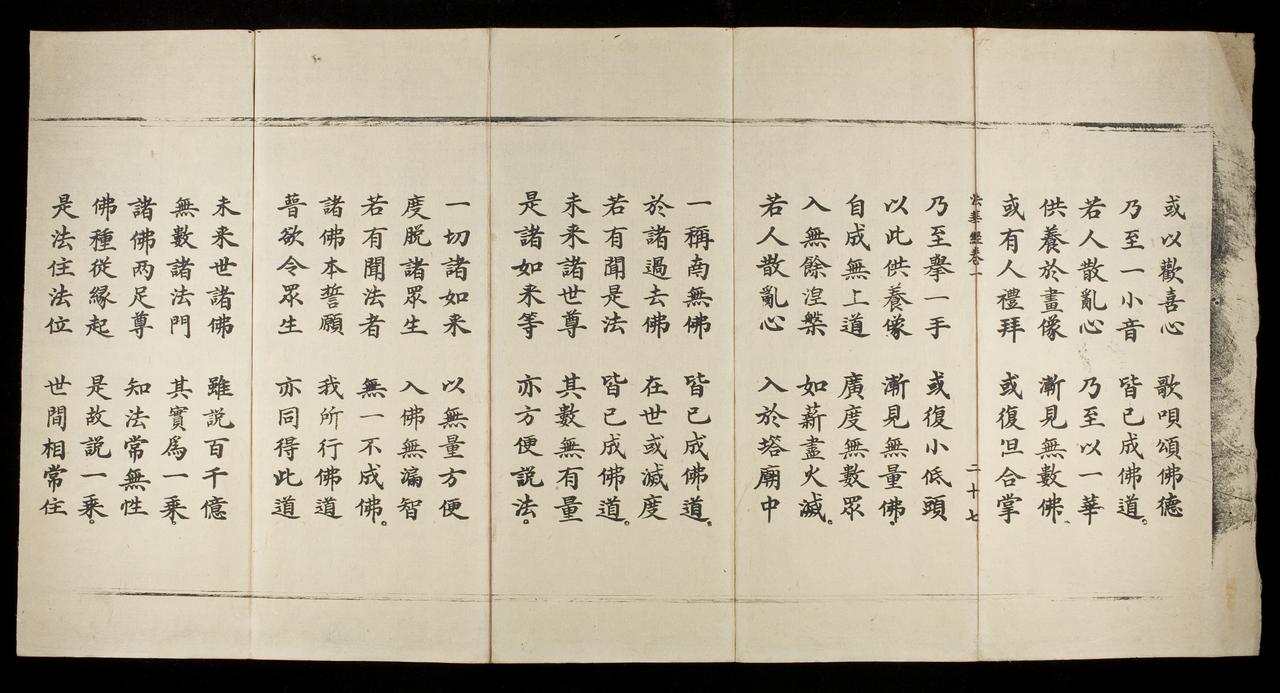 或以歡喜心 歌唄頌佛德
乃至一小音 皆已成佛道。
若人散亂心 乃至以一華
供養於畫像 漸見無數佛。
或有人禮拜 或復但合掌
法華經卷一 二十七
乃至舉一手 或復小低頭
以此供養像 漸見無量佛。
自成無上道 廣度無數眾
入無餘涅槃 如薪盡火滅。
若人散亂心 入於塔廟中
一稱南無佛 皆已成佛道。
於諸過去佛 在世或滅度
若有聞是法 皆已成佛道。
未来諸世尊 其數無有量
是諸如来等 亦方便說法。
一切諸如来 以無量方便
度脫諸眾生 入佛無漏智
若有聞法者 無一不成佛。
諸佛本誓願 我所行佛道
普欲令眾生 亦同得此道
未来世諸佛 雖說百千億
無數諸法門 其實為一乘。
諸佛兩足尊 知法常無性
佛種從緣起 是故說一乘。
是法住法位 世間相常住